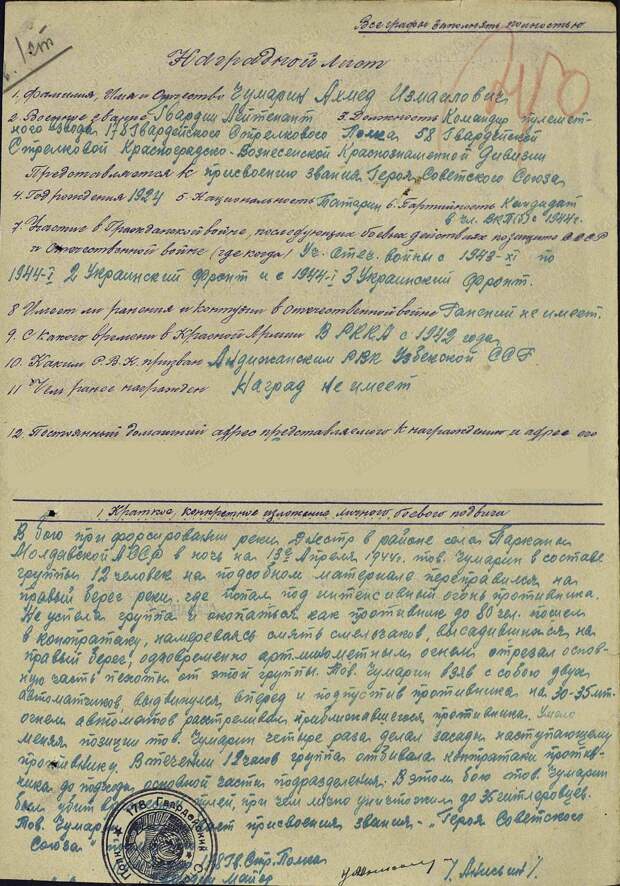 Все графы заполнять полностью
Наградной лист
1. Фамилия, Имя и Отчество Чумарин Ахмед Измаилович
2 Военное звание Гвардии Лейтенант 3. Должность Командир пулемет-
ного взвода 178 Гвардейского Стрелкового Полка 58 Гвардейской
Стрелковой Красноградско-Вознесенской Краснознаменной Дивизии
Представляется к присвоению звания Героя Советского Союза
4. Год рождения 1924 5 Национальность Татарин 6. Партийность Кандидат
в чл. ВКП(б) с 1944г.
7. Участие в Гражданской войне, последующих боевых действиях по защите СССР
и Отечественной войне (где когда) Уч. Отеч. войны с 1943-XI по
1944-I 2 Украинский Фронт и с 1944-I 3 Украинский Фронт.
8 Имеет ли ранения и контузии в Отечественной войне Ранений не имеет.
9. С какого времени в Красной Армии В РККА с 1942 года
10. Каким Р.В.К. призван Андижанским РВК Узбекской ССР
11 Чем ранее награжден Наград не имеет
12. Постоянный домашний адрес представляемого к награждению и адрес его
1 Краткое, конкретное изложение личного боевого подвига
В бою при форсировании реки Днестр в районе села Парканы
Молдавской АССР в ночь на 13е Апреля 1944г. тов. Чумарин в составе
группы 12 человек на подсобном материале переправился на
правый берег реки, где попал под интенсивный огонь противника.
Не успела группа и окопаться как противник до 80 чел. пошел
в контратаку, намереваясь смять смельчаков, высадившихся на
правый берег, одновременно арт.минометным огнем отрезал основ-
ную часть пехоты от этой группы. Тов. Чумарин взяв с собою двух
автоматчиков, выдвинулся вперед и подпустив противника на 30-35мт.
огнем автоматов расстреливал приближавшегося противника. Умело
меняя позиции тов. Чумарин четыре раза делал засады наступающему
противнику. В течении 12 часов группа отбивала контратаки против-
ника до подхода основной части подразделения. В этом бою тов. Чумарин
был убит при чем лично уничтожил до гитлеровцев.
Тов. Чумарин присвоения звания - "Героя Советского
Союза"
178 Гв. Стр. Полка
Майор
178 Гвардейский